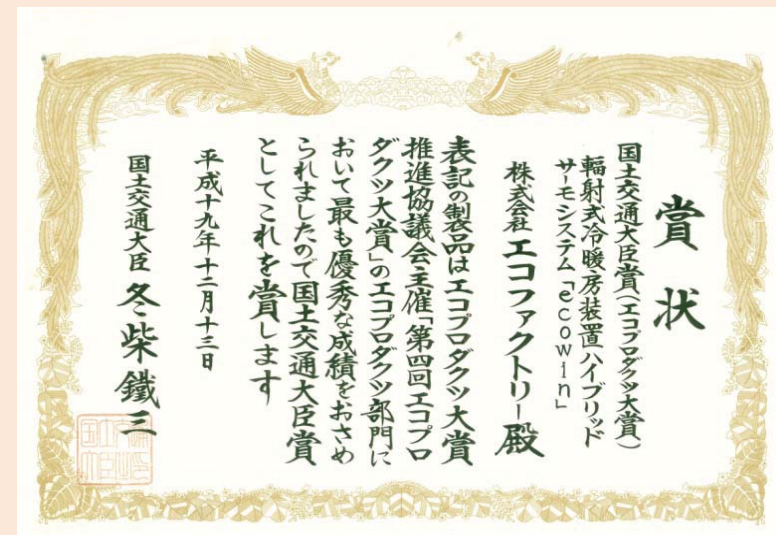 賞状
国土交通大臣賞（エコプロダクツ大賞）
輻射式冷暖房装置ハイブリッド
サーモシステム「ecowin」
株式会社 エコファクトリー殿
表記の製品はエコプロダクツ大賞
推進協議会主催「第四回エコプロ
ダクツ大賞」のエコプロダクツ部門に
おいて最も優秀な成績をおさめ
られましたので国土交通大臣賞
としてこれを賞します
平成十九年十二月十三日
国土交通大臣 冬柴鐵三